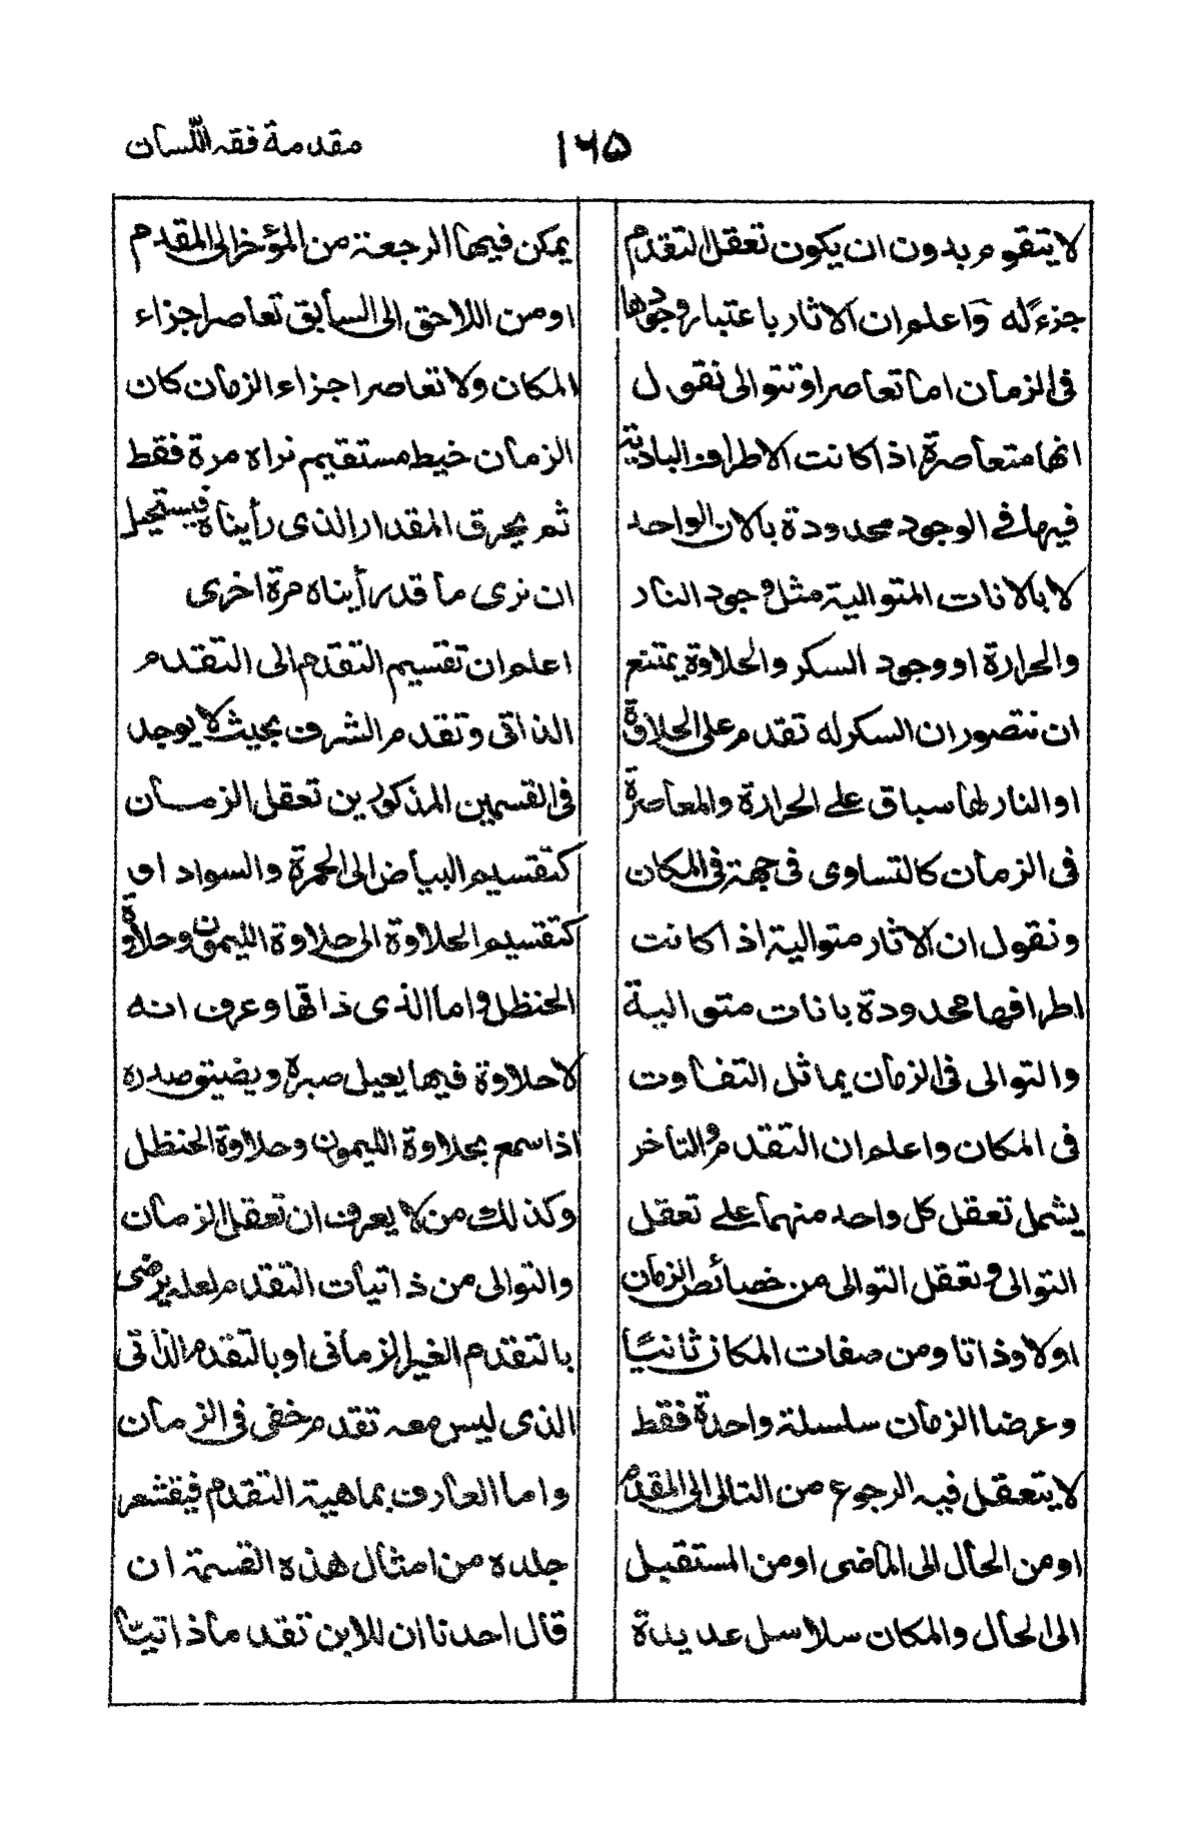 مقدمة فقه اللّسان
۱۶۵
لا يتقوم بدون ان يكون تعقل التقدم
جزء له واعلم ان الاثار باعتبار وجودها
فى الزمان اما تعاصر او تتوالى نقول
انها متعاصرة اذا كانت الاطراف البادية
فيها فى الوجود محدودة بالان الواحد
لا بالانات المتوالية مثل وجود النار
والحرارة او وجود السكر والحلاوة يمتنع
ان نتصور ان السكر له تقدم على الحلاوة
او النار لها سباق على الحرارة والمعاصرة
فى الزمان كالتساوى فى جهة فى المكان
ونقول ان الاثار متوالية اذا كانت
اطرافها محدودة بانات متوالية
والتوالى فى الزمان يماثل التفاوت
فى المكان واعلم ان التقدم والتأخر
يشمل تعقل كل واحد منهما على تعقل
التوالى وتعقل التوالى من خصائص الزمان
اولا وذاتا ومن صفات المكان ثانيًا
وعرضا الزمان سلسلة واحدة فقط
لا يتعقل فيه الرجوع من التالى الى المقدم
او من الحال الى الماضى او من المستقبل
الى الحال والمكان سلاسل عديدة
يمكن فيها الرجعة من المؤخر الى المقدم
او من اللاحق الى السابق تعاصر اجزاء
المكان ولا تعاصر اجزاء الزمان كان
الزمان خيط مستقيم نراه مرة فقط
ثم يحرق المقدار الذى رأيناه فيستحيل
ان نرى ما قد رأيناه مرة اخرى
اعلم ان تقسيم التقدم الى التقدم
الذاتى وتقدم الشرف بحيث لا يوجد
فى القسمين المذكورين تعقل الزمان
كتقسيم البياض الى الحمرة والسواد او
كتقسيم الحلاوة الى حلاوة الليمون وحلاوة
الحنظل واما الذى ذاقها وعرف انه
لا حلاوة فيها يعيل صبره ويضيق صدره
اذا سمع بحلاوة الليمون وحلاوة الحنظل
وكذلك من لا يعرف ان تعقل الزمان
والتوالى من ذاتيات التقدم لعله يرضى
بالتقدم الغير الزمانى او بالتقدم الذاتى
الذى ليس معه تقدم خفى فى الزمان
واما العارف بماهية التقدم فيقشعر
جلده من امثال هذه القسمة ان
قال احدنا ان للابن تقدما ذاتيًا